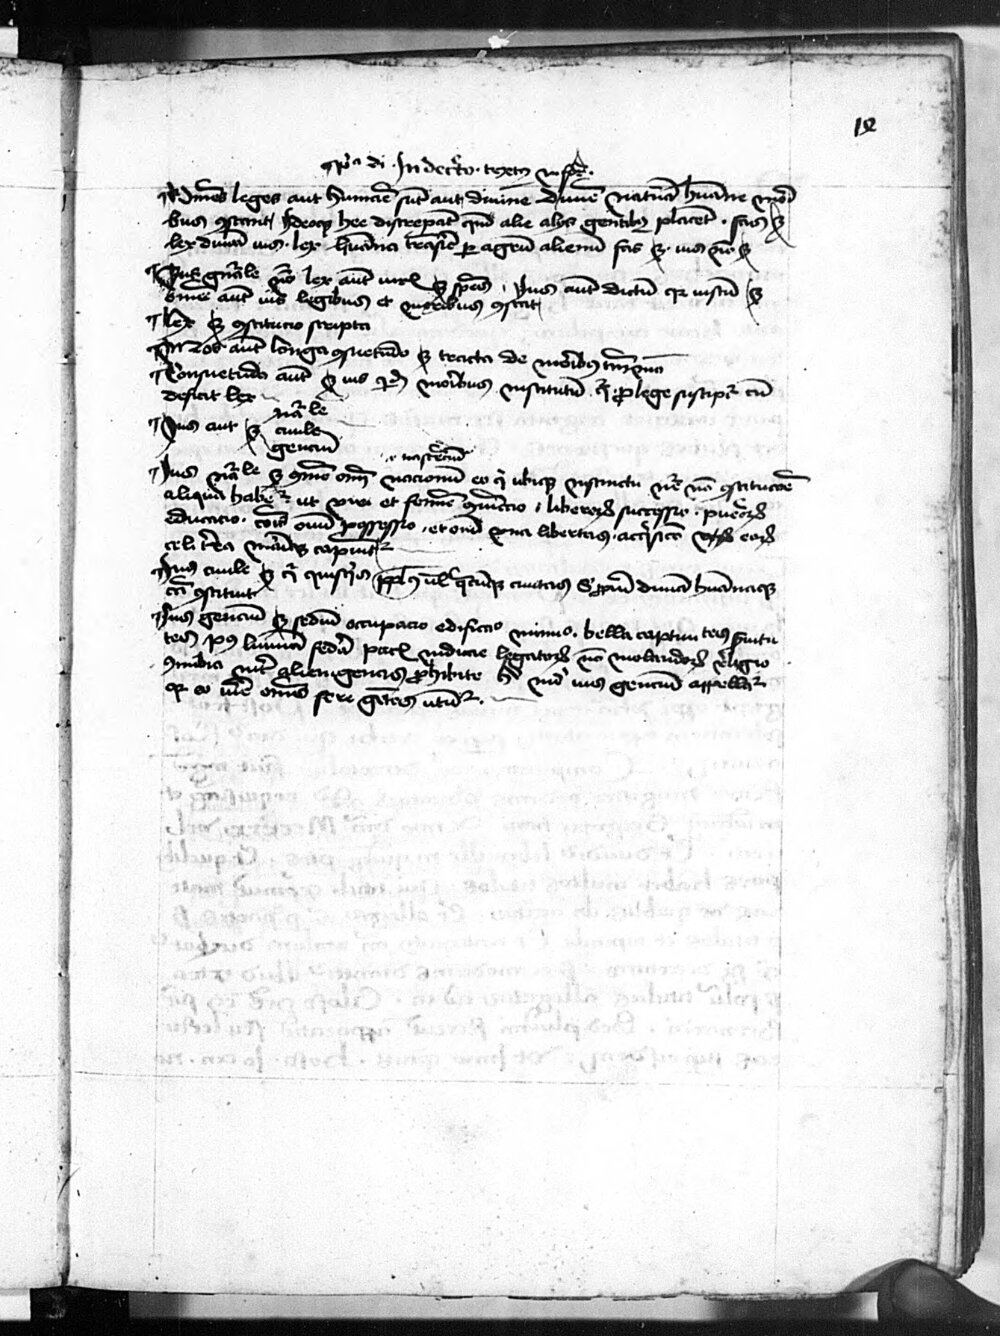 12
di. In decreto.
Omnes leges aut humane sunt aut divine divine natura humane mori
bus constant Ideoque hee discrepant quoniam alie aliis gentibus placent. fas est
lex divina ius. lex humana transire per agrum alienum fas est. ius non est
Ius generale nomen est lex autem iuris est species. Ius autem dictum quia iustum est
omne autem ius legibus et moribus constat
Lex est constitucio scripta
Mos autem longa consuetudo est tracta de moribus
Consuetudo autem est ius moribus institutum quod pro lege suscipitur cum
deficit lex
Ius aut est naturale
civile
gencium
Ius naturale est commune omnium nacionum eo quod ubique instinctu nature non constitucione
aliqua habetur ut viri et femine coniunctio. liberorum successio. puerorum
educatio. communis omnium possessio. et omnium una libertas. acquisicio eorum que
celi terra marique capiuntur
Ius civile est quod quisque populus vel civitas sibi proprium divina humanaque
causa constituit
Ius gencium est sedium occupacio edificacio municio. bella captivitates servitu
tes federa pacis inducie legatorum non violandorum religio
connubia inter alienigenas prohibita hoc inde ius gencium appellatur
quia eo iure omnes fere gentes utuntur.